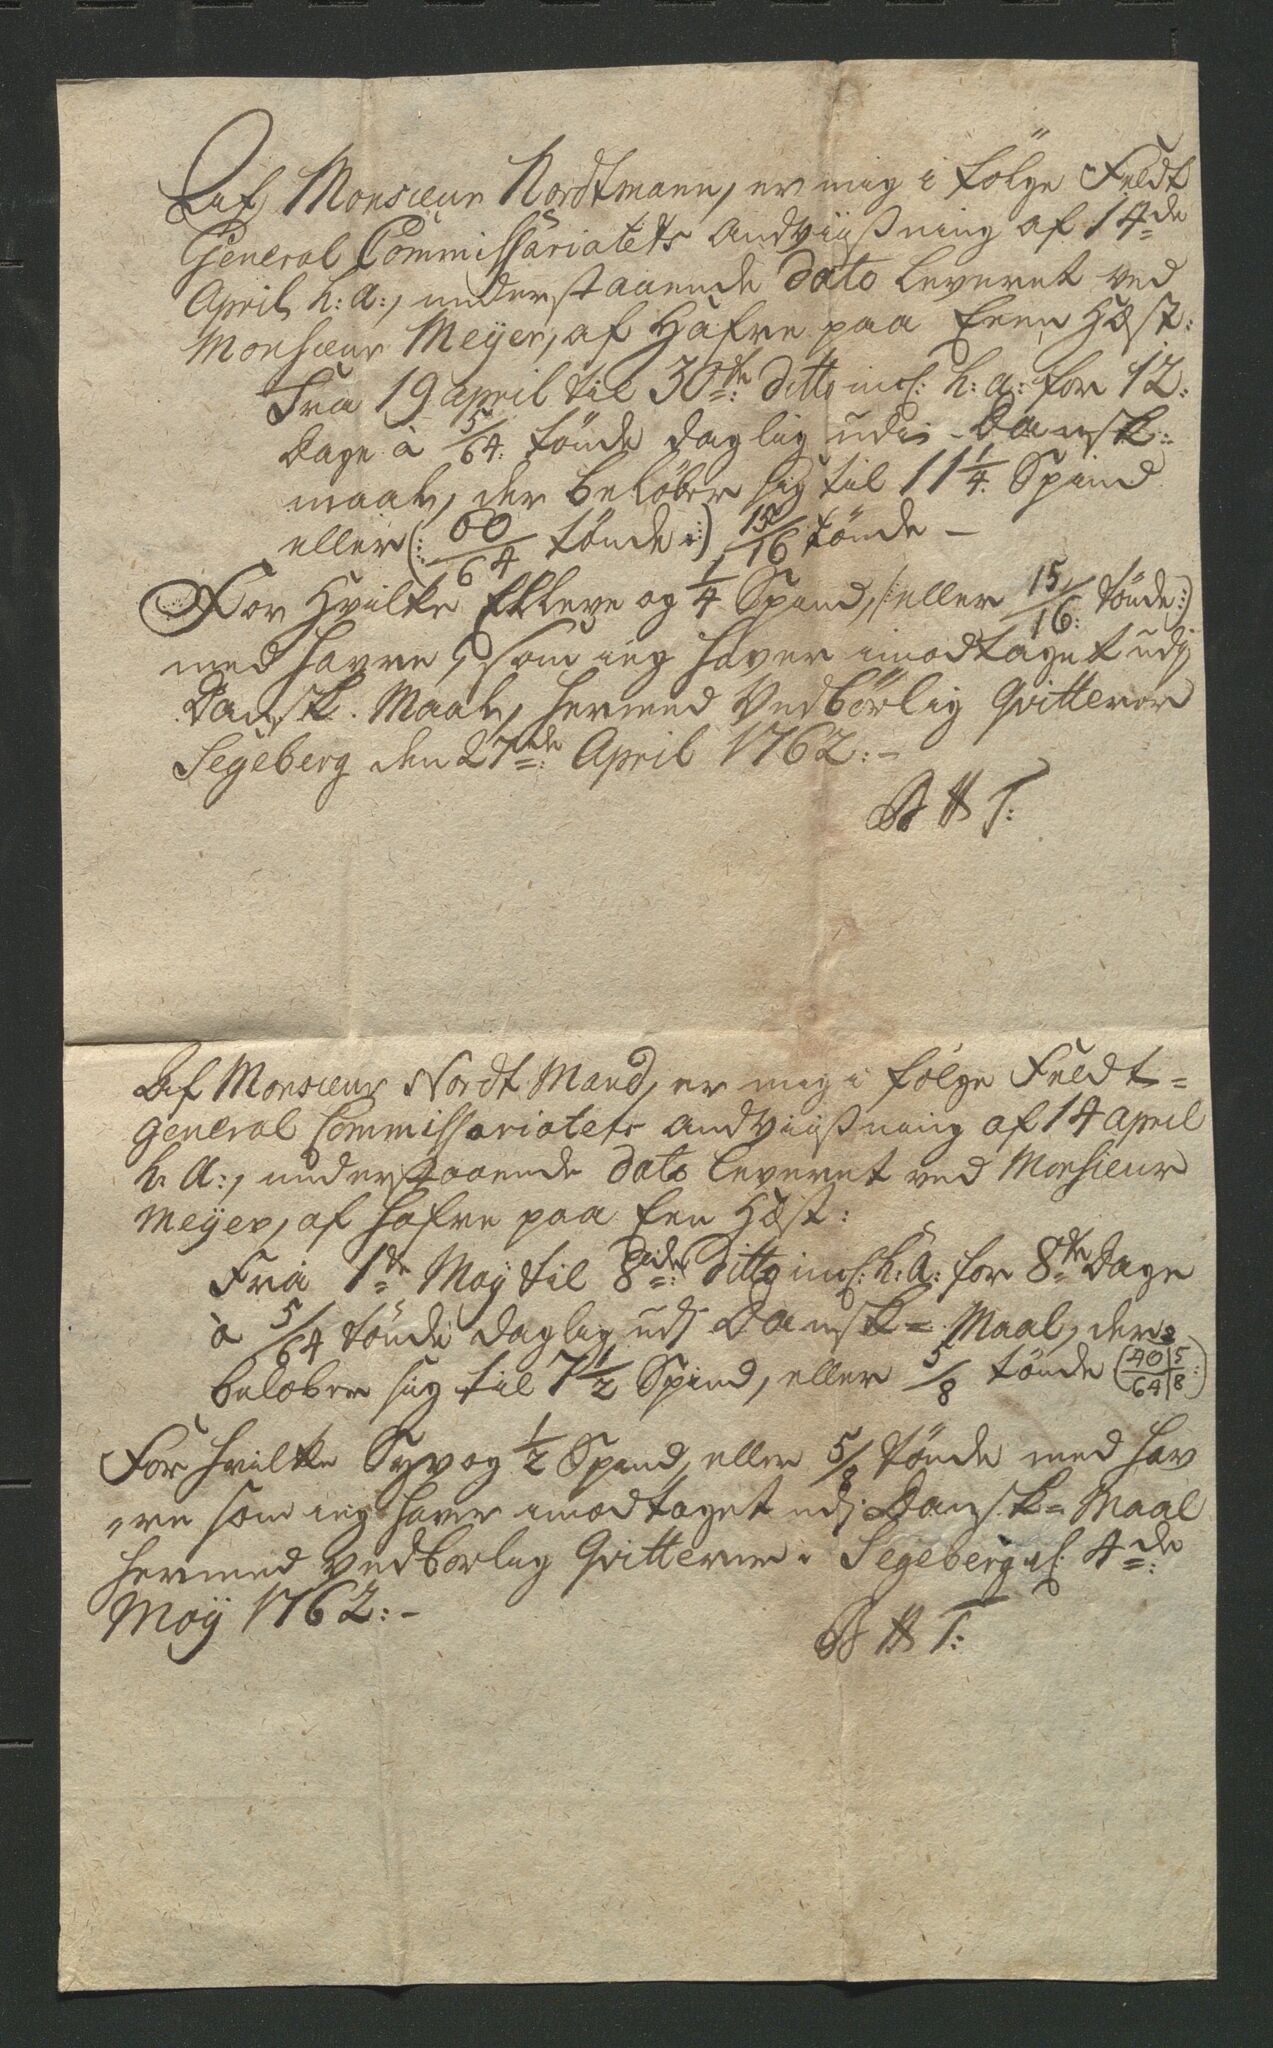 Af Monsieur Nordtmann, er mig i fölge Feldt
General Commissariatets Andviißning af 14de
April h: a:, understaaende Dato leveret ved
Monsieur Meÿer, af Hafre paa Een Hæst:
Fra 19 april til 30te: Ditto incl: h: a: for 12:
Dage à 5/64: tönde daglig udi Dansk:
maal, der belöber sig til 11 1/4 Spind
eller (: 60/64 tönde :) 15/16 tönde –
For Hvilke Elleve og 1/4 Spind, /: eller 15/16: tönde :)
med havre, som ieg haver imodtaget udj
Dansk. Maal, hermed Vedbörlig Qvitterer
Segeberg den 27de: April 1762: –
B H T:
Af Monsieur Nordt Mand, er mig i fölge Feldt=
General Commissariatets Andviißning af 14 april
h: A:, understaaende Dato leveret ved Monsieur
Meÿer, af Hafre paa Een Hæst:
Fra 1te Maÿ til 8de: Ditto incl: h: A: for 8te Dage
à 5/64 tönde daglig udj Dansk= Maal, der
beløber sig til 7 1/2 Spind, eller 5/8 tönde (40/64|5/8:)
For hvilke Syv og 1/2 Spind, eller 5/8 tönde med hav
„re som ieg haver imodtaget udj Dansk= Maal
hermed vedborlig Qvitterer. Segeberg d: 4de:
Maÿ 1762: –
B H T: